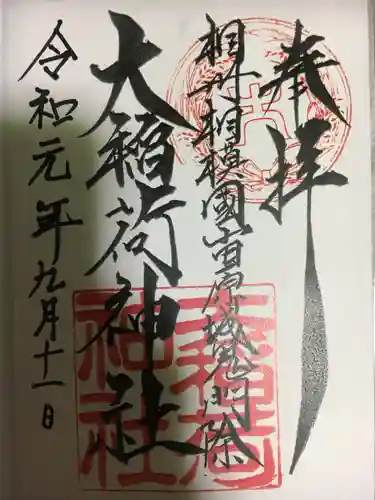 奉拝
相州相模國小田原城鬼門除
大稲荷神社
令和元年九月十一日
大稲荷
神社